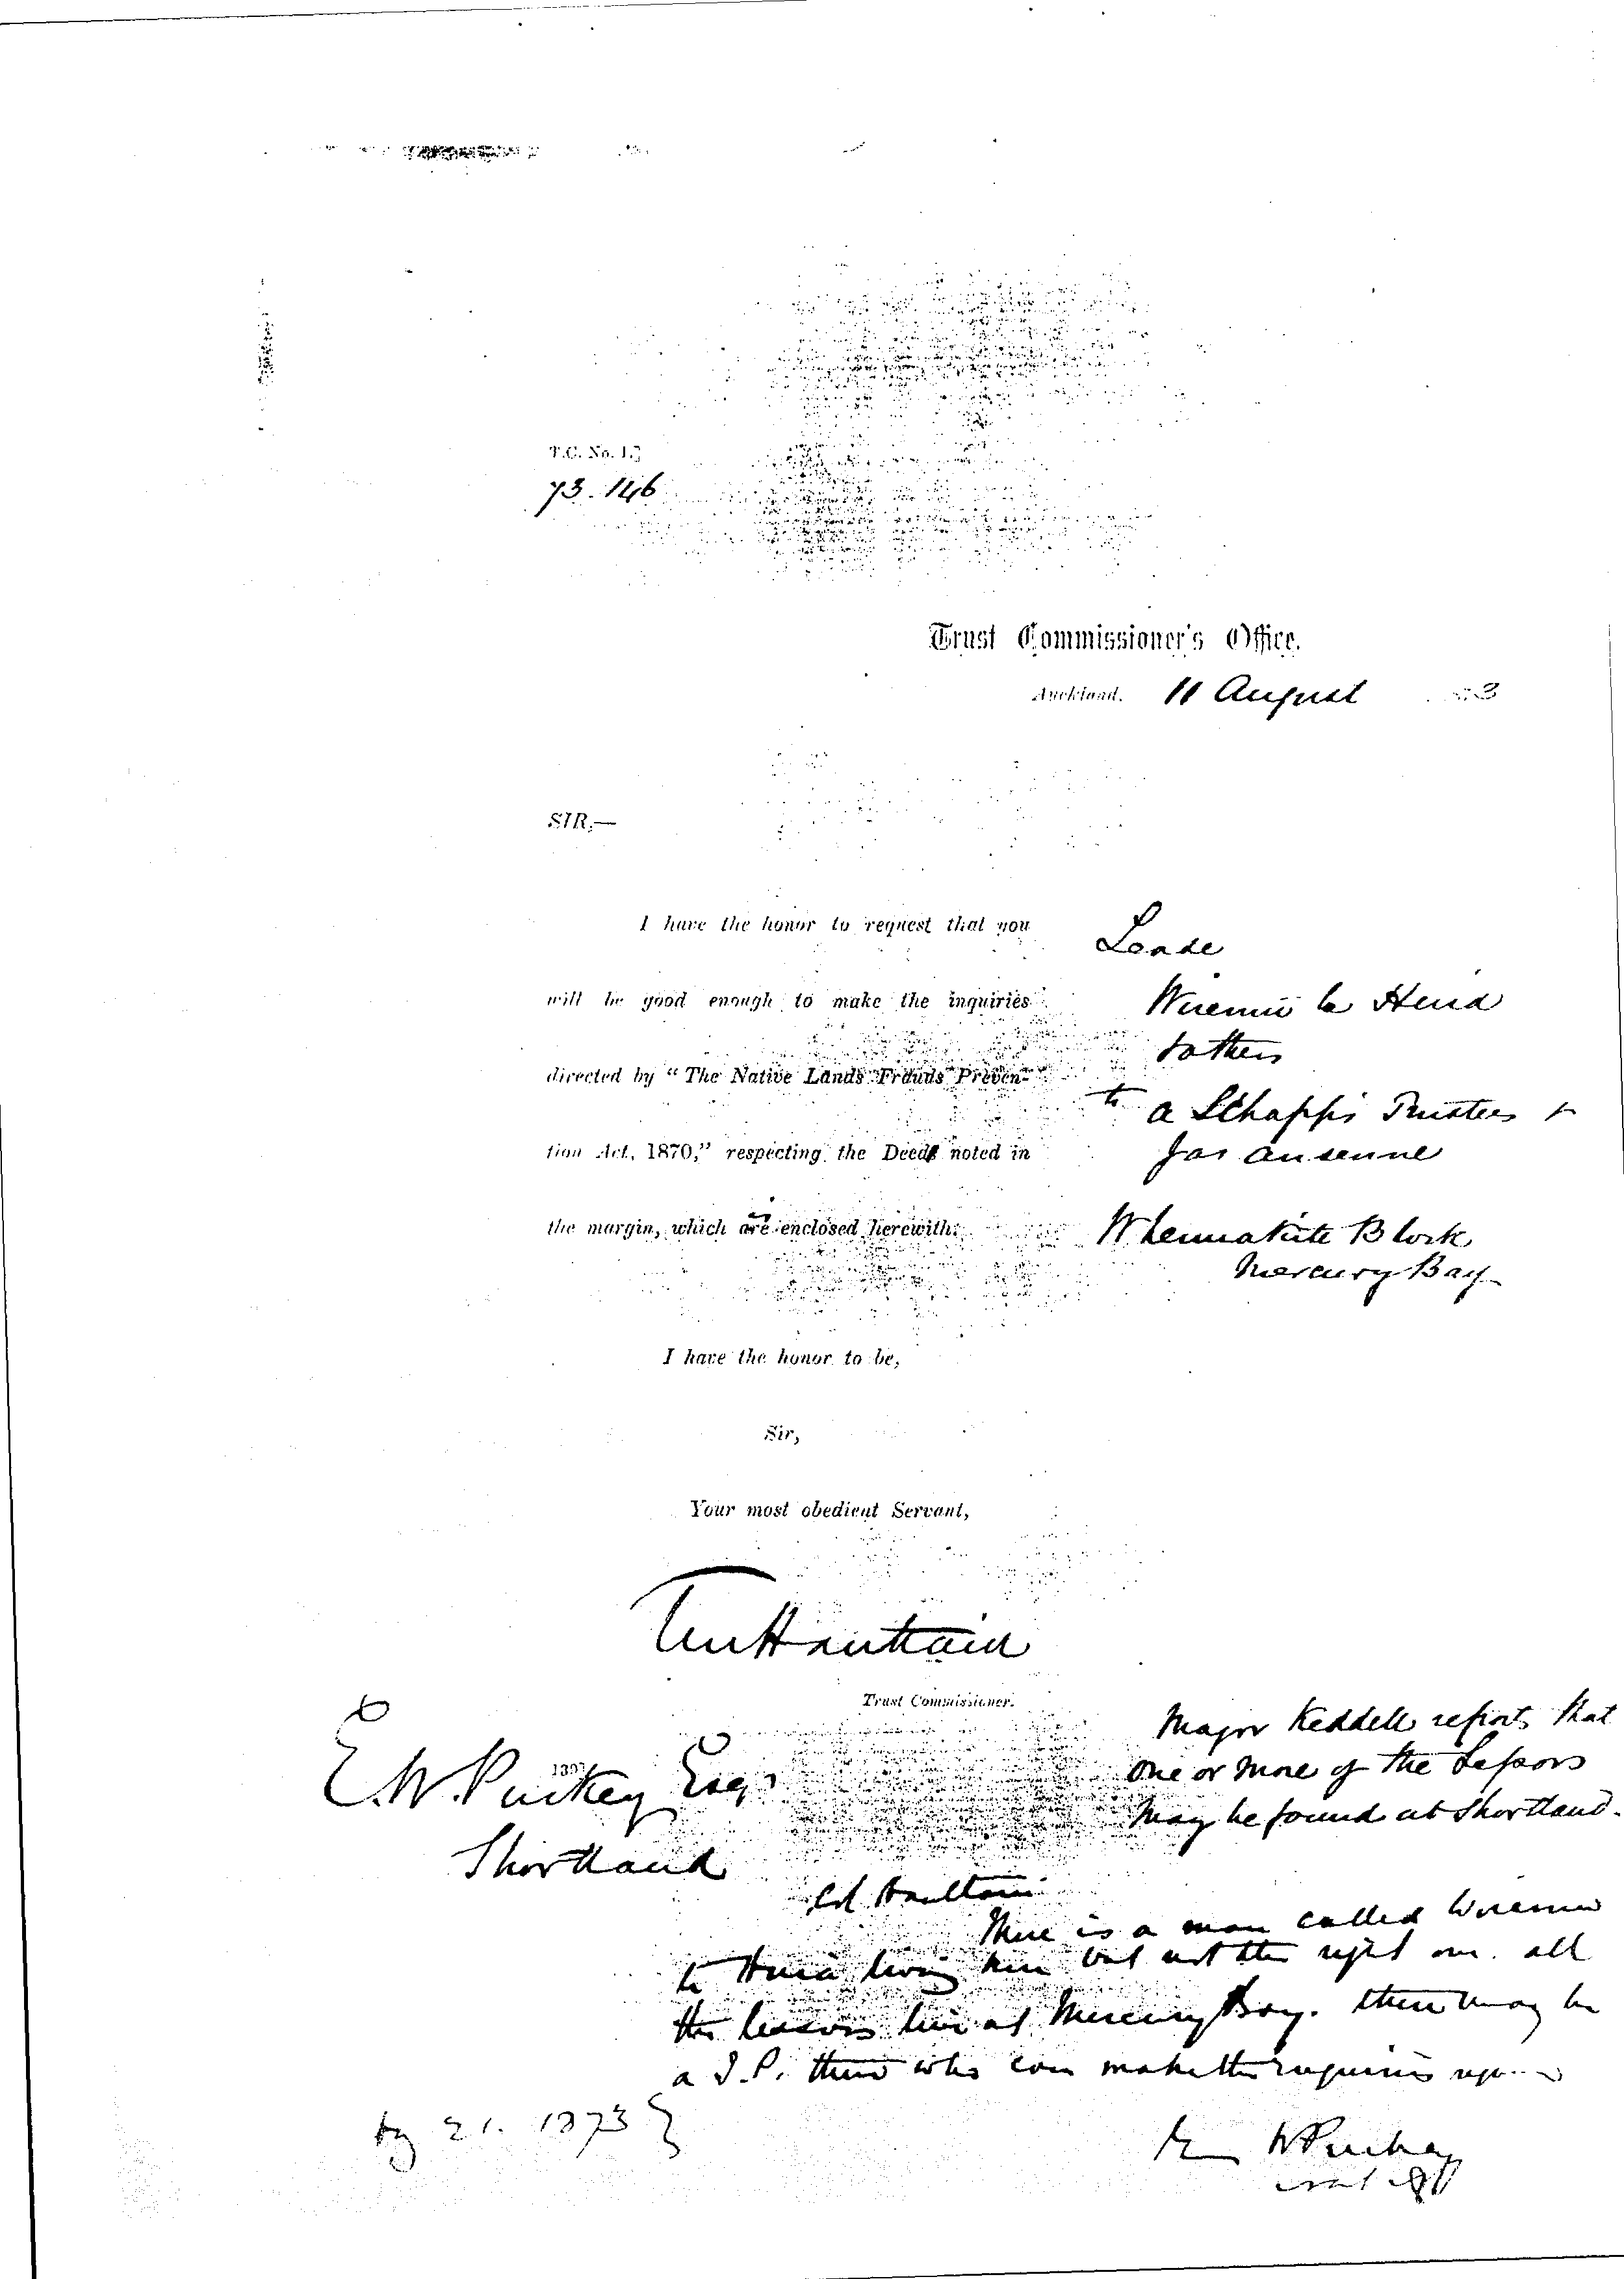 T.C. No. 1.]
73.146
Trust Commissioner's Office.
Auckland, 11 August 3
SIR,—
I have the honor to request that you
will be good enough to make the inquiries
directed by "The Native Lands Frauds Preven-
tion Act, 1870," respecting the Deeds noted in
the margin, which are enclosed herewith.
Lease
Wiremu te Huia
& others
to
a Schappi Trustees
Jas Ansenne
Whenuakite Block
Mercury Bay
I have the honor to be,
Sir,
Your most obedient Servant,
Haultain
Trust Commissioner.
E.W. Puckey Esqr
Shortland
Major Keddell reports that
one or more of the Lessors
may be found at Shortland.
Col Haultain
There is a man called Wiremu
te Huia living here but not the right one. all
the lessors live at Mercury Bay. there may be
a J.P. there who can make the inquiries
21. 1873
W Puckey